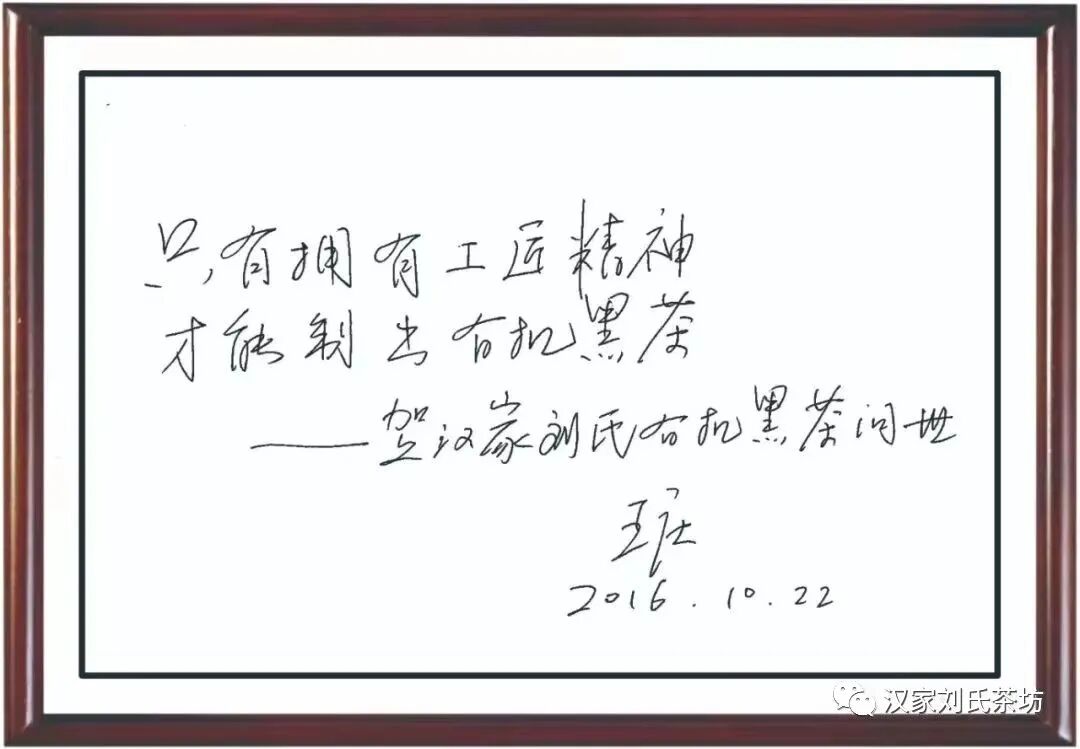 只有拥有工匠精神
才能制出有机黑茶
——贺汉家刘氏有机黑茶问世
王庄
2016.10.22
汉家刘氏茶坊